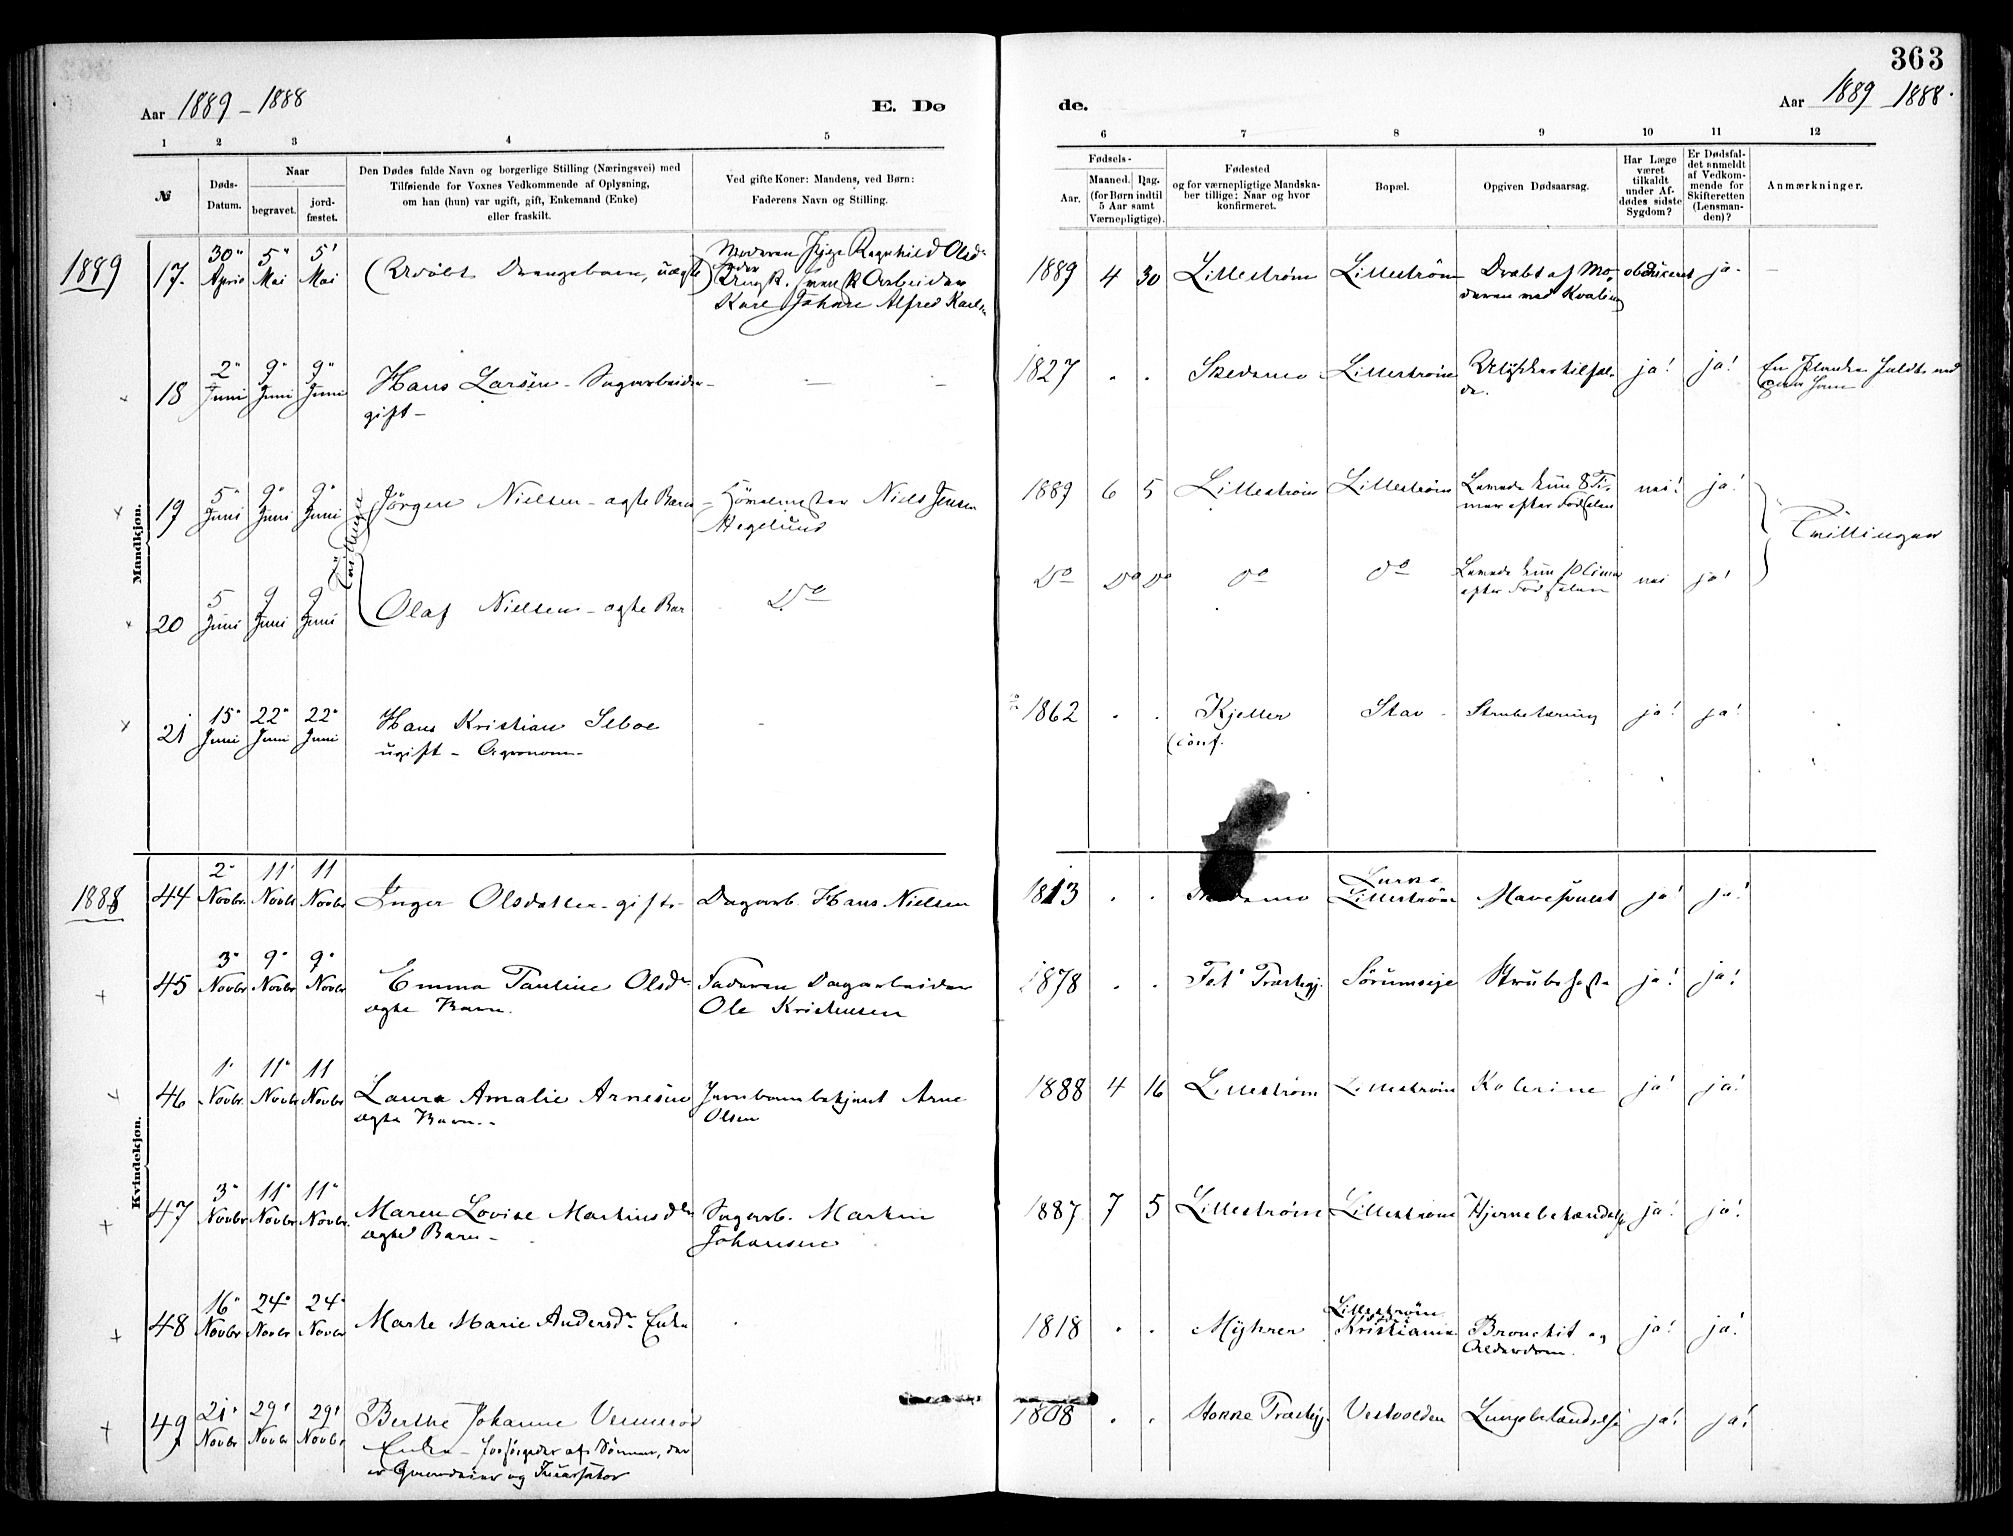 363
Aar 1889 - 1888
E. Dø
de.
Aar 1889 - 1888.
1 2 3 4 5
6 7 8 9 10 11 12
№
Døds-Datum.
Naar
begravet.
jord-fæstet.
Den Dødes fulde Navn og borgerlige Stilling (Næringsvei) med
Tilføiende for Voxnes Vedkommende af Oplysning,
om han (hun) var ugift, gift, Enkemand (Enke)
eller fraskilt.
Ved gifte Koner: Mandens, ved Børn:
Faderens Navn og Stilling.
Fødsels-
Aar.
Maaned. Dag.
(for Børn indtil
5 Aar samt
Værnepligtige).
Fødested
og for værnepligtige Mandska-
ber tillige: Naar og hvor
konfirmeret.
Bopæl.
Opgiven Dødsaarsag.
Har Læge
været
tilkaldt
under Af-
dødes sidste
Sygdom?
Er Dødsfal-
det anmeldt
af Vedkom-
mende for
Skifteretten
(Lensman-
den)?
Anmærkninger.
Mandkjøn.
1889
17. 30" April 5" Mai 5' Mai
(Udøbt Drengebarn, uægte)
Moderen Pige Ragnhild Olsd.
Karl Johan Alfred Karls
1889 4 30 Lillestrøm Lillestrøm
Dræbt af Mo-
deren ved Kvælning
obduceret ja -
18 2" Juni 9" Juni 9" Juni
Hans Larsen - Sagarbeider -
gift -
1827 . . Skedsmo Lillestrøm
Ulykkestilfæl-
de.
ja! ja!
En Planke faldt ned
over ham
19 5" Juni 9" Juni 9" Juni
Jørgen Nielsen - ægte Barn
Tvillinger
Høvelmester Niels Jensen
Hegelund
1889 6 5 Lillestrøm Lillestrøm
Levede kun 8 Ti-
mer efter Fødselen
nei! ja!
Tvillinger
20 5 Juni 9 Juni 9 Juni
Olaf Nielsen - ægte Bar
Do
Do Do Do Do Do
Levede kun
efter Fødselen
nei ja!
21 15" Juni 22" Juni 22" Juni
Hans Kristian Seboe
ugift - Agronom -
1862 . . Kjeller Stav Strubetæring ja! ja!
conf.
Kvindekjøn.
1888
44 2" Novbr. 11' Novbr 11 Novbr
Inger Olsdatter - gift - Dagarb. Hans Nielsen
1813 . . Skedsmo
Lillestrøm Mavesvulst ja! ja!
45 3" Novbr 9" Novbr 9" Novbr
Emma Pauline Olsdr
ægte Barn.
Faderen Dagarbeider
Ole Kristensen
1878 . . Fet Præstegj. Sørumseje Strubehoste ja! ja!
46 1' Novbr. 11" Novbr 11 Novbr
Laura Amalie Arnesen
ægte Barn.
Jernbanebetjent Arne
Olsen
1888 4 16 Lillestrøm Lillestrøm Kolerine ja! ja!
47 3" Novbr 11" Novbr 11" Novbr.
Maren Lovise Martinsdtr
ægte Barn -
Sagarb. Martin
Johansen
1887 7 5 Lillestrøm Lillestrøm Hjernebetændelse ja! ja!
48 16" Novbr 24" Novbr 24" Novbr
Marte Marie Andersdr Enke
1818 . . Myhrer
Lillestrøm
Kristiania
Bronchit og
Alderdom.
ja! ja!
49 21" Novbr 29! Novbr 29! Novbr
Berthe Johanne Vennerød
Enke - forsørgedes af Sønner, der
er Gaardeier og
1808 . . Præstegj Vestvolden Lungebetændelse ja! ja!